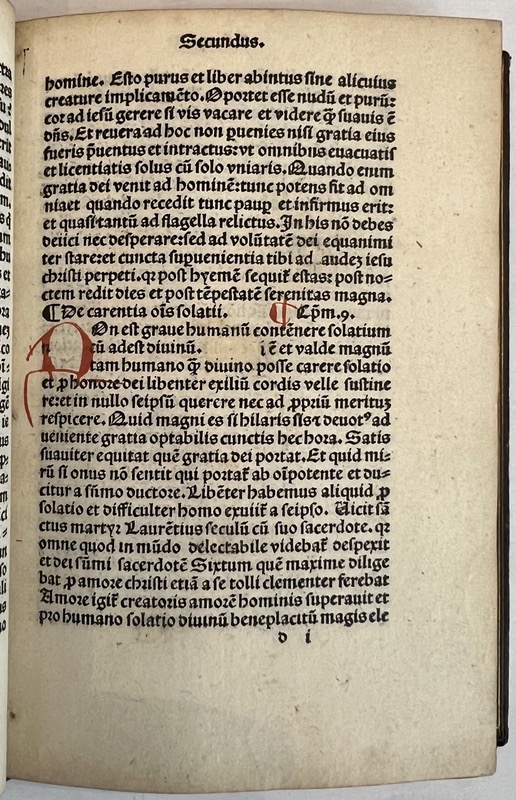 Secundus.
homine. Esto purus et liber abintus sine alicuius
creature implicamẽto. Oportet esse nudũ et purũ:
cor ad iesũ gerere si vis vacare et videre q̃ suauis ẽ
dñs. Et reuera ad hoc non ꝑuenies nisi gratia eius
fueris p̃uentus et intractus: vt omnibus euacuatis
et licentiatis solus cũ solo vniaris. Quando enim
gratia dei venit ad hominẽ: tunc potens fit ad om
nia et quando recedit tunc paup̲ et infirmus erit:
et quasi tantũ ad flagella relictus. In his nõ debes
deiici nec desperare: sed ad volũtatẽ dei equanimi
ter stare: et cuncta suꝑuenientia tibi ad iesu
christi perpeti. qꝛ post hyemẽ sequit̃ estas: post no⸗
ctem redit dies et post tẽpestatẽ serenitas magna.
¶ De carentia oĩs solatii. ¶ Cp̃m. 9.
n On est graue humanũ contẽnere solatium
cũ adest diuinũ. ẽ et valde magnũ
tam humano q̃ diuino posse carere solatio
et ꝓ honore dei libenter exiliũ cordis velle sustine
re: et in nullo seipsũ querere nec ad ꝓpriũ meritũ
respicere. Quid magni es si hilaris sis ⁊ deuotꝰ ad
ueniente gratia optabilis cunctis hec hora. Satis
suauiter equitat quẽ gratia dei portat. Et quid mi⸗
rũ si onus nõ sentit qui portat̃ ab oĩpotente et du⸗
citur a sũmo ductore. Libẽter habemus aliquid ꝓ
solatio et difficulter homo exuit̃ a seipso. Uicit sã
ctus martyꝛ Laurẽtius seculũ cũ suo sacerdote. qꝛ
omne quod in mũdo delectabile videbat̃ despexit
et dei sũmi sacerdotẽ Sixtum quẽ maxime dilige
bat ꝓ amore christi etiã a se tolli clementer ferebat
Amore igit̃ creatoris amorẽ hominis superauit et
pro humano solatio diuinũ beneplacitũ magis ele
d i